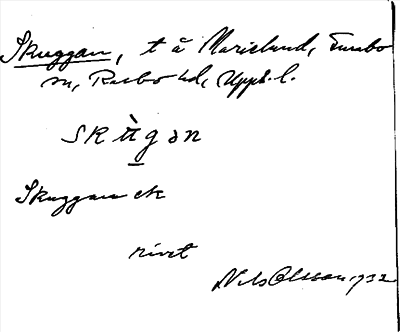 Skuggan, t å Marielund, Funbo
sn, Rasbo hd, Upps. l.
skùgən
Skuggan ek
rivet
Nils Olsson 1932